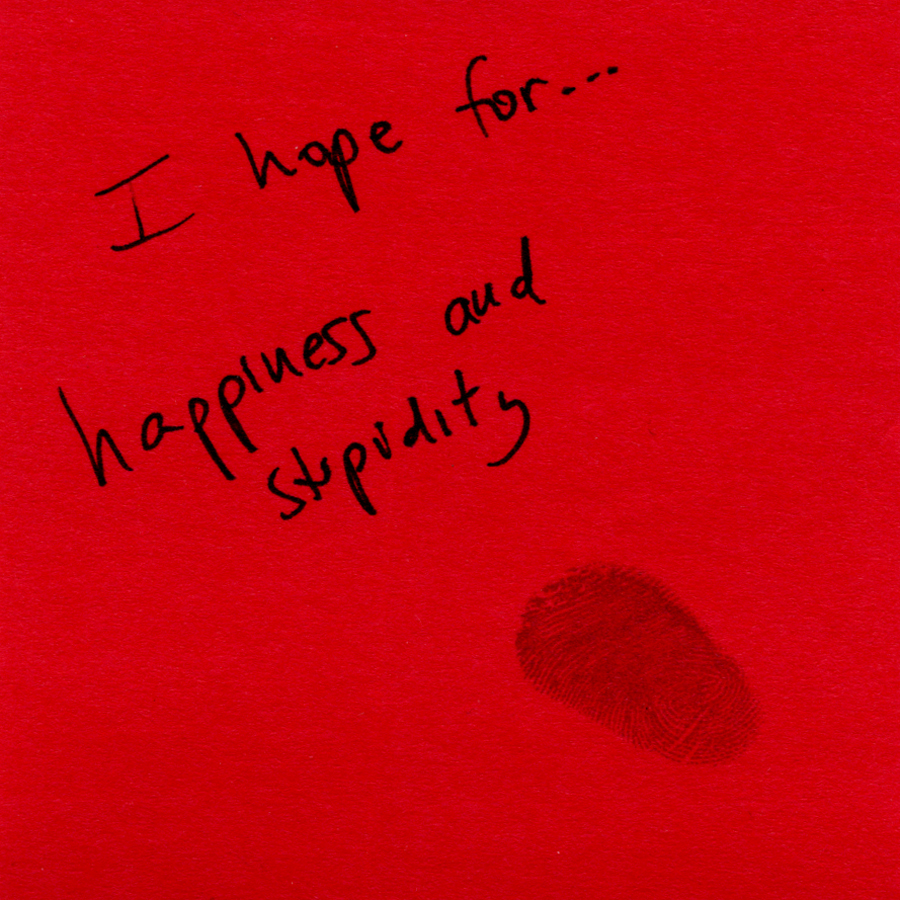 I hope for...
happiness and
stupidity